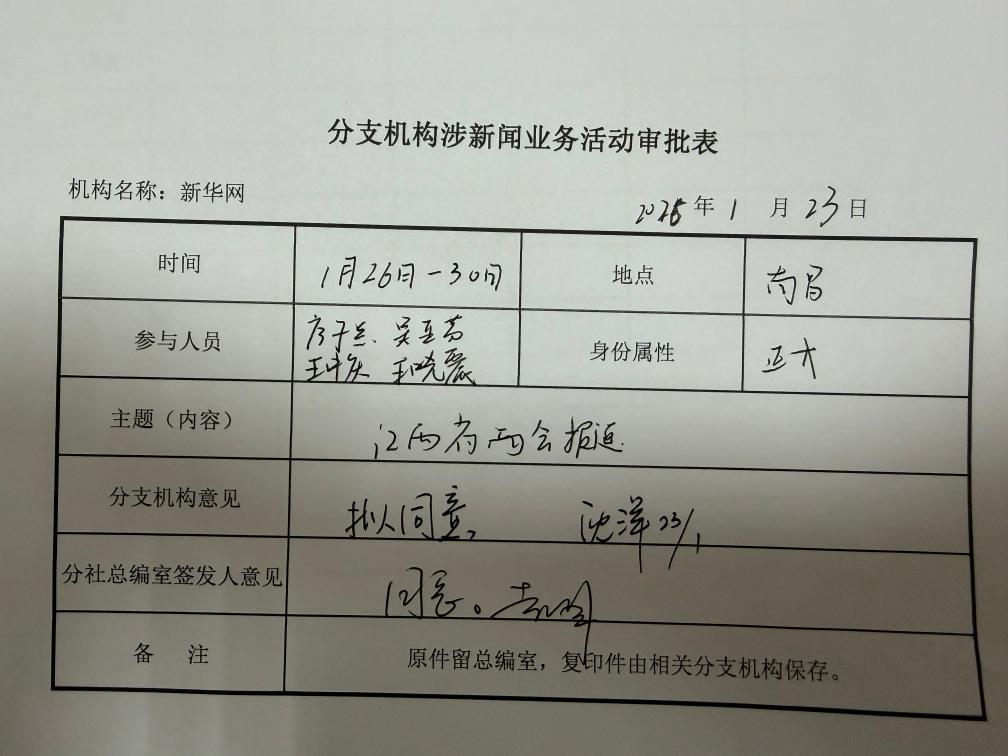 分支机构涉新闻业务活动审批表
机构名称：新华网
年 1 月 23 日
时间 1月26日-30日 地点 南昌
参与人员 身份属性
王晓震
主题（内容） 江西省两会报道
分支机构意见 拟同意 沈洋 23/1
分社总编室签发人意见 同意。
备 注 原件留总编室，复印件由相关分支机构保存。